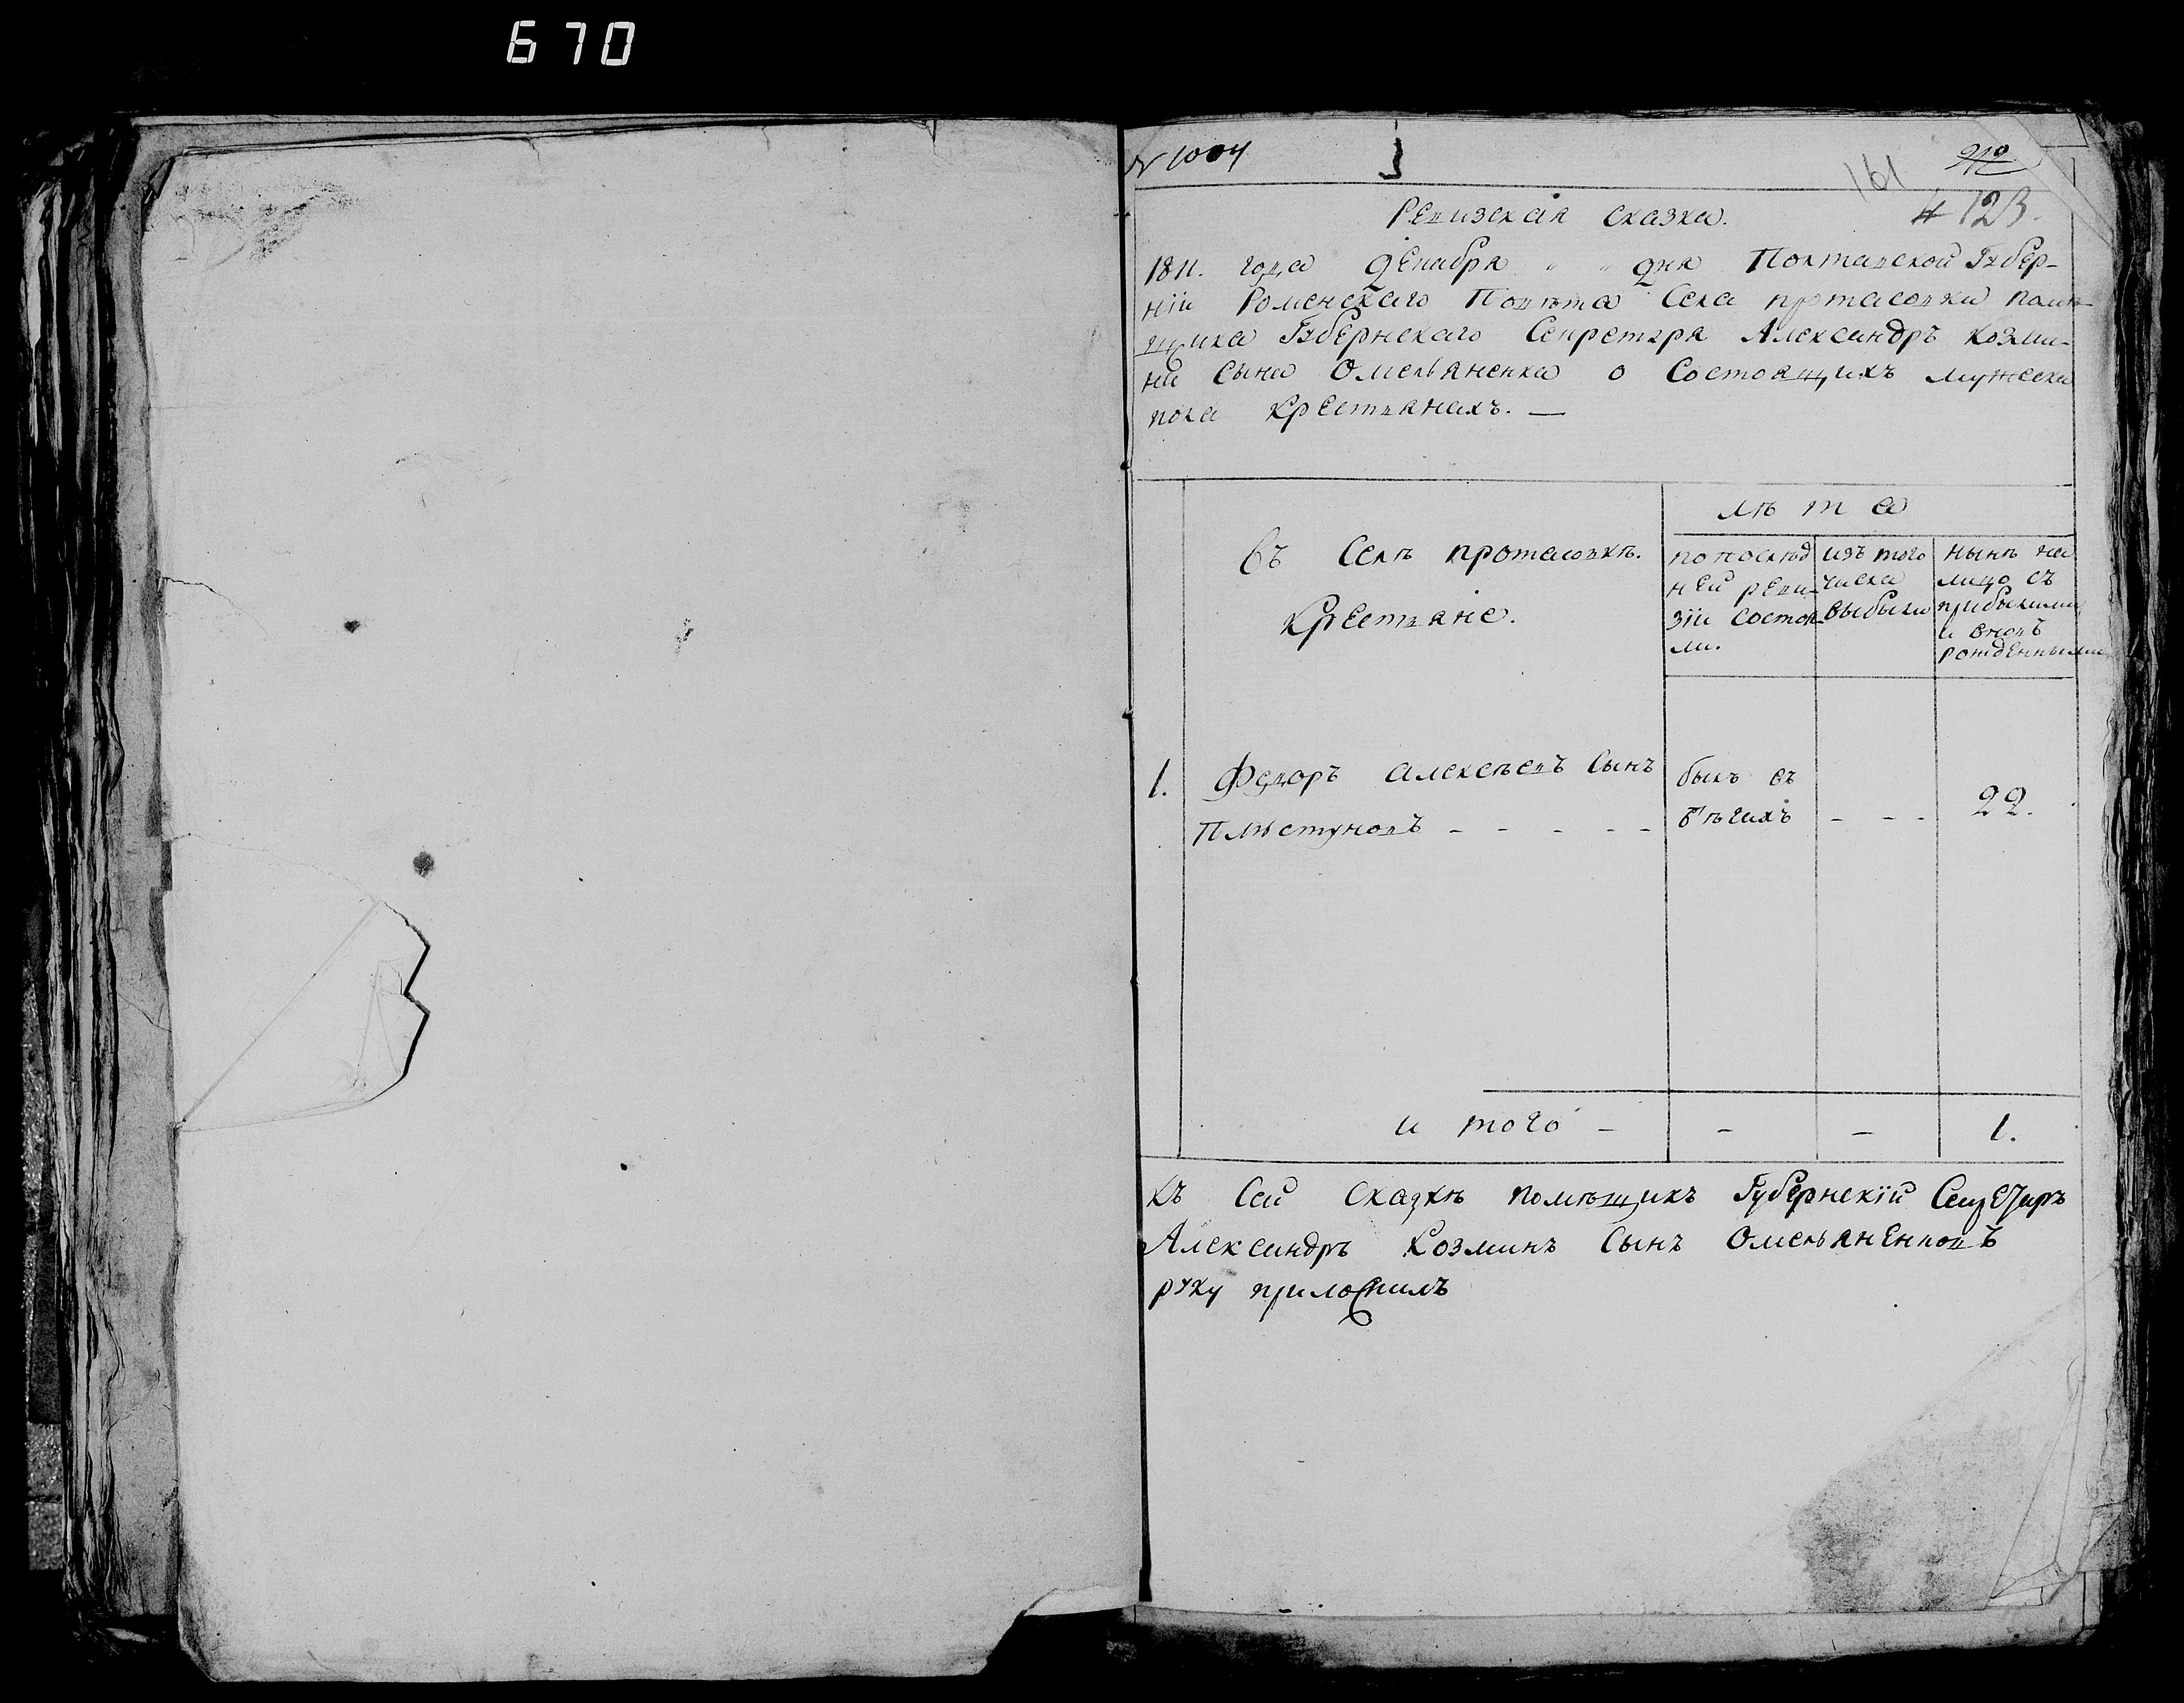 670
N 1004
912
161
4 123.
Ревизская сказка.
1811. года декабря " " дня Полтавской Губер-
нiи Роменскаго Повѣта Села протасовки помѣ-
щика Губернскаго Секретаря Александръ козми-
на Сына Омельяненка о Состоящихъ мужеска
пола крестьянахъ. —
лѣта
въ Селѣ протасовкѣ.
Крестьяне.
по послѣд
ней реви-
зiи состоя-
ли.
изъ того
числа
выбыли
нынѣ на
лицо съ
прибылыми
и вновь
рожденными
1. Федоръ алексѣевъ Сынъ
Плѣстуновъ - - - - -
былъ въ
бѣгахъ
- - -
22.
и того - - - 1.
къ Сей Сказкѣ помѣщикъ Губернскiй Секретаръ
Александръ Козминъ Сынъ Омельяненковъ
руку приложилъ